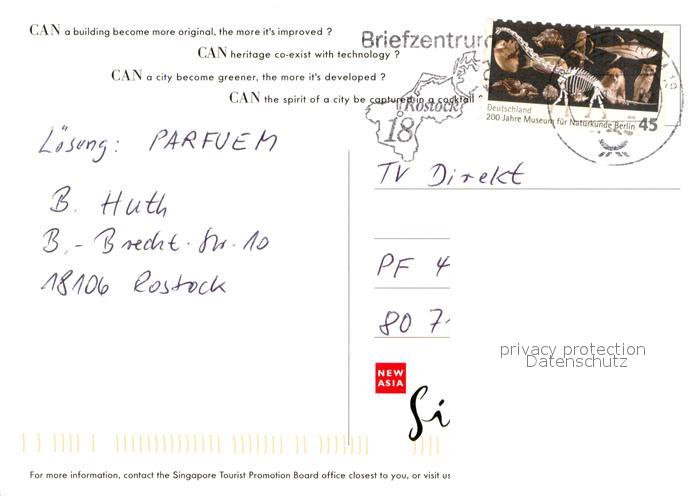 CAN a building become more original, the more it's improved ?
CAN heritage co-exist with technology ?
CAN a city become greener, the more it's developed ?
CAN the spirit of a city be captured in a cocktail
Briefzentrum
Rostock
18
Deutschland
200 Jahre Museum für Naturkunde Berlin 45
Lösung: PARFUEM
B. Huth
B.-Brecht-Str. 10
18106 Rostock
TV Direkt
PF 4
80 7
privacy protection
Datenschutz
NEW
ASIA
Si
For more information, contact the Singapore Tourist Promotion Board office closest to you, or visit us